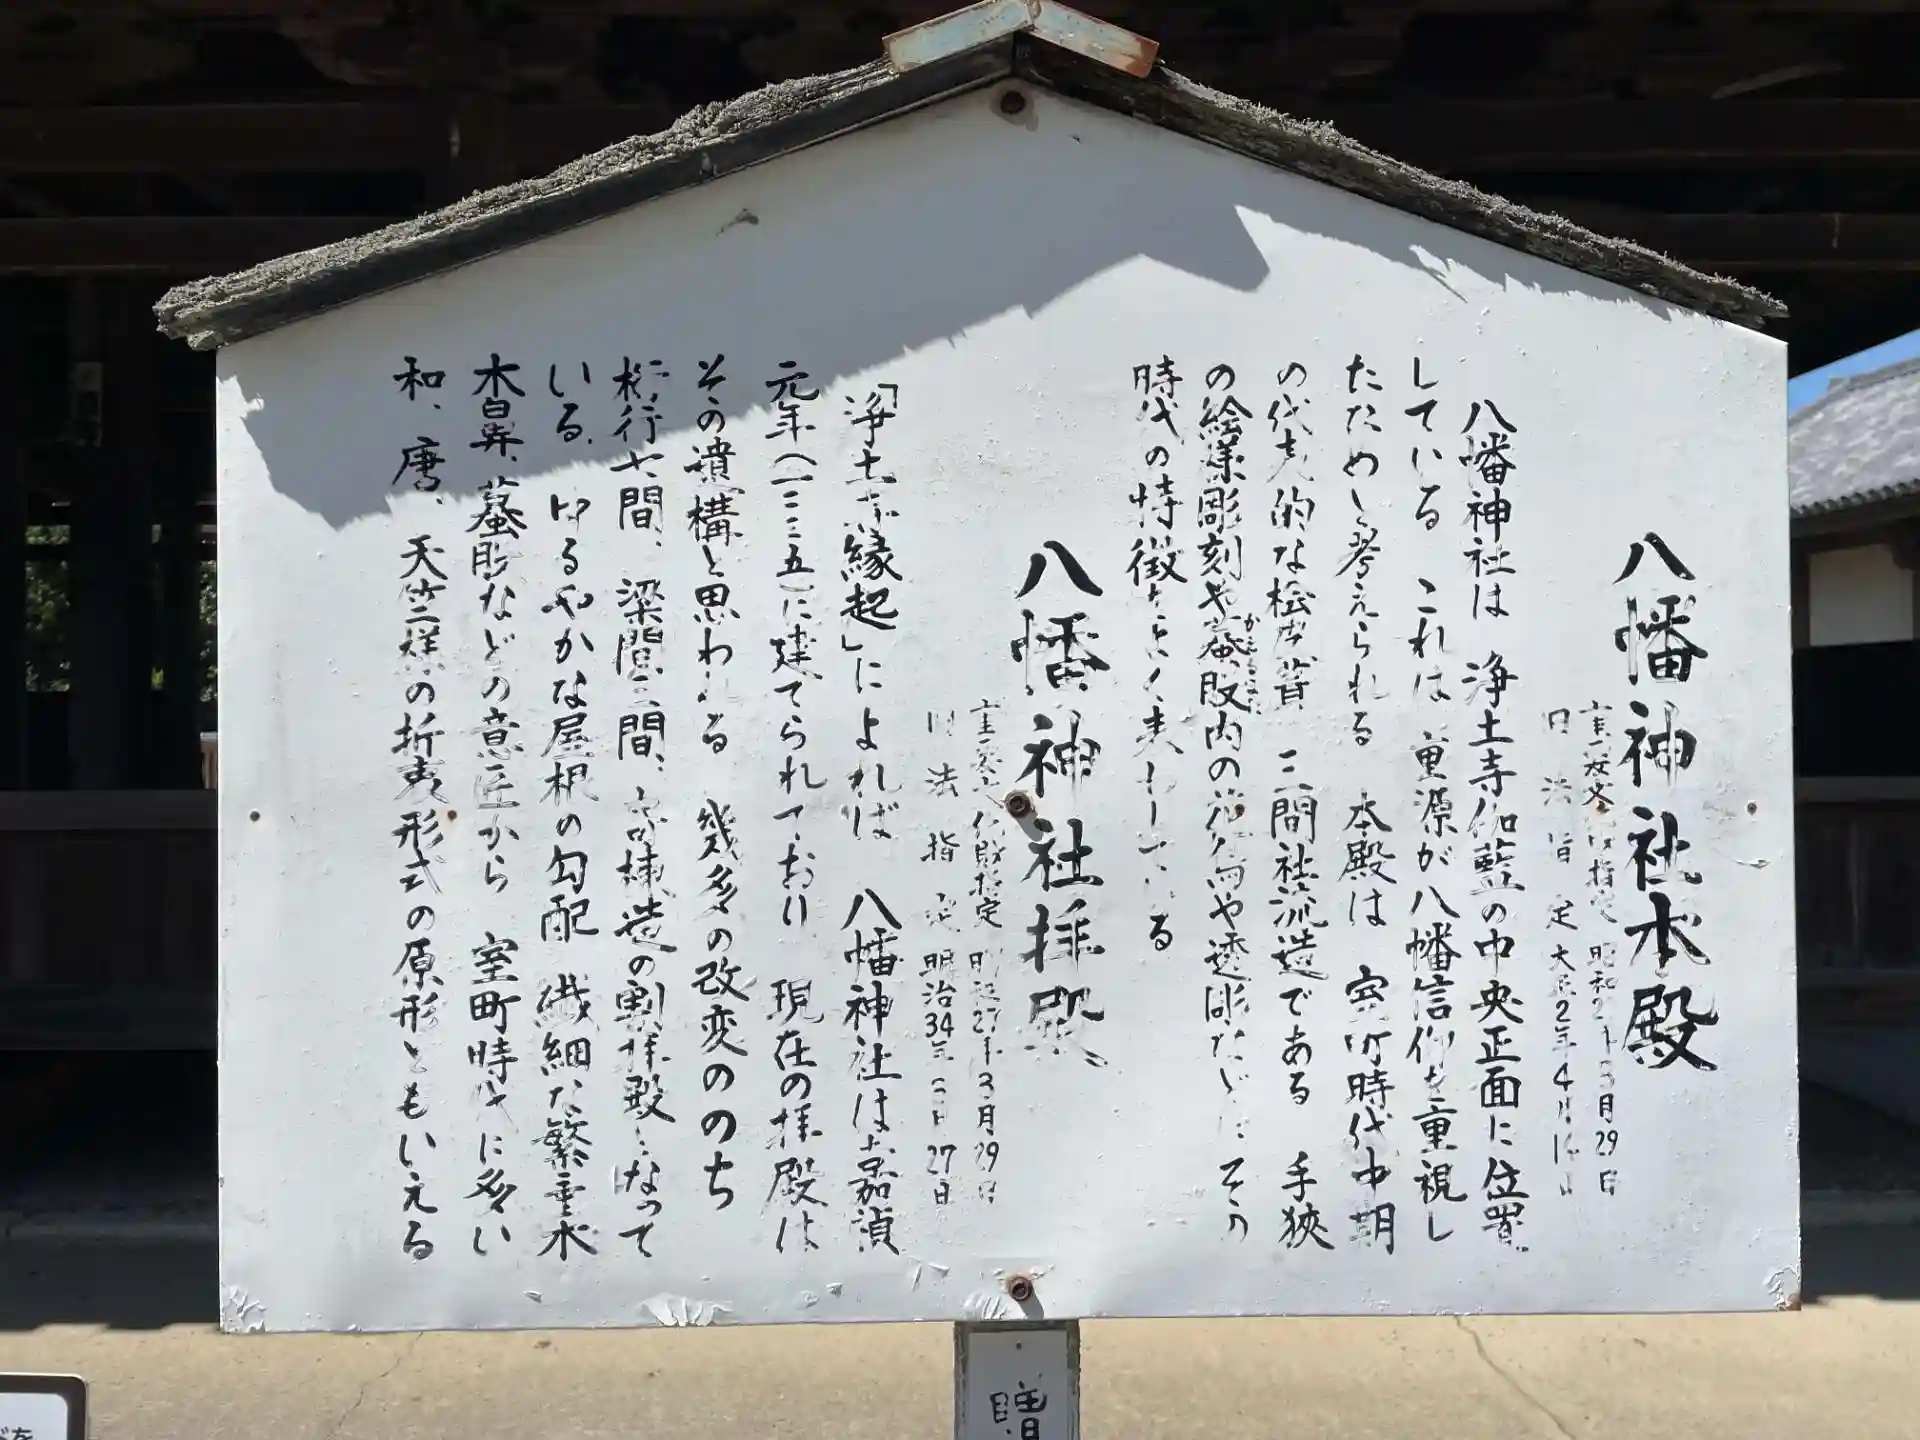 八幡神社本殿
重要文化財指定 昭和2 年3月29日
旧法指定 大正2年4月14日
八幡神社は 浄土寺伽藍の中央正面に位置
している これは 重源が八幡信仰を重視し
たためと考えられる 本殿は 室町時代中期
の代表的な桧皮葺 三間社流造である 手狭
の絵様彫刻や蟇股内の 向や透彫などに その
かえるまた
時代の特徴をよく表わしている
八幡神社拝殿
重要文化財指定 昭和27年3月29日
旧法指定 明治34年3月27日
「浄土寺縁起」によれば 八幡神社は嘉禎
元年(一二三五)に建てられており 現在の拝殿は
その遺構と思われる 幾多の改変ののち
桁行七間、梁間三間、寄棟造の割拝殿となって
いる ゆるやかな屋根の勾配 繊細な繋虹
木鼻、蟇股などの意匠から 室町時代に多い
和、唐、天竺様の折衷形式の原形ともいえる
贈